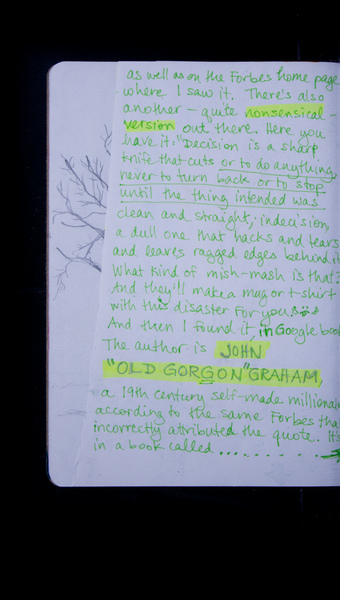 as well as on the Forbes home page
where I saw it. There's also
another – quite nonsensical –
version out there. Here you
have it: "Decision is a sharp
knife that cuts or to do anything,
never to turn back or to stop
until the thing intended was
clean and straight; indecision,
a dull one that hacks and tears
and leaves ragged edges behind it
What kind of mish-mash is that?
And they'll make a mug or t-shirt
with this disaster for you.
And then I found it, in Google book
The author is JOHN
"OLD GORGON" GRAHAM,
a 19th century self-made millionai
according to the same Forbes tha
incorrectly attributed the quote. It's
in a book called ..........